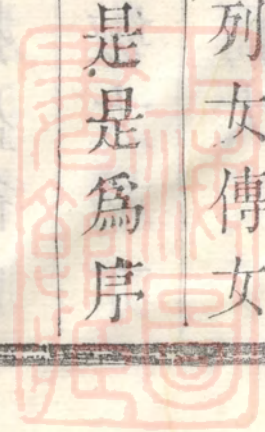 列女傳女
是是爲序